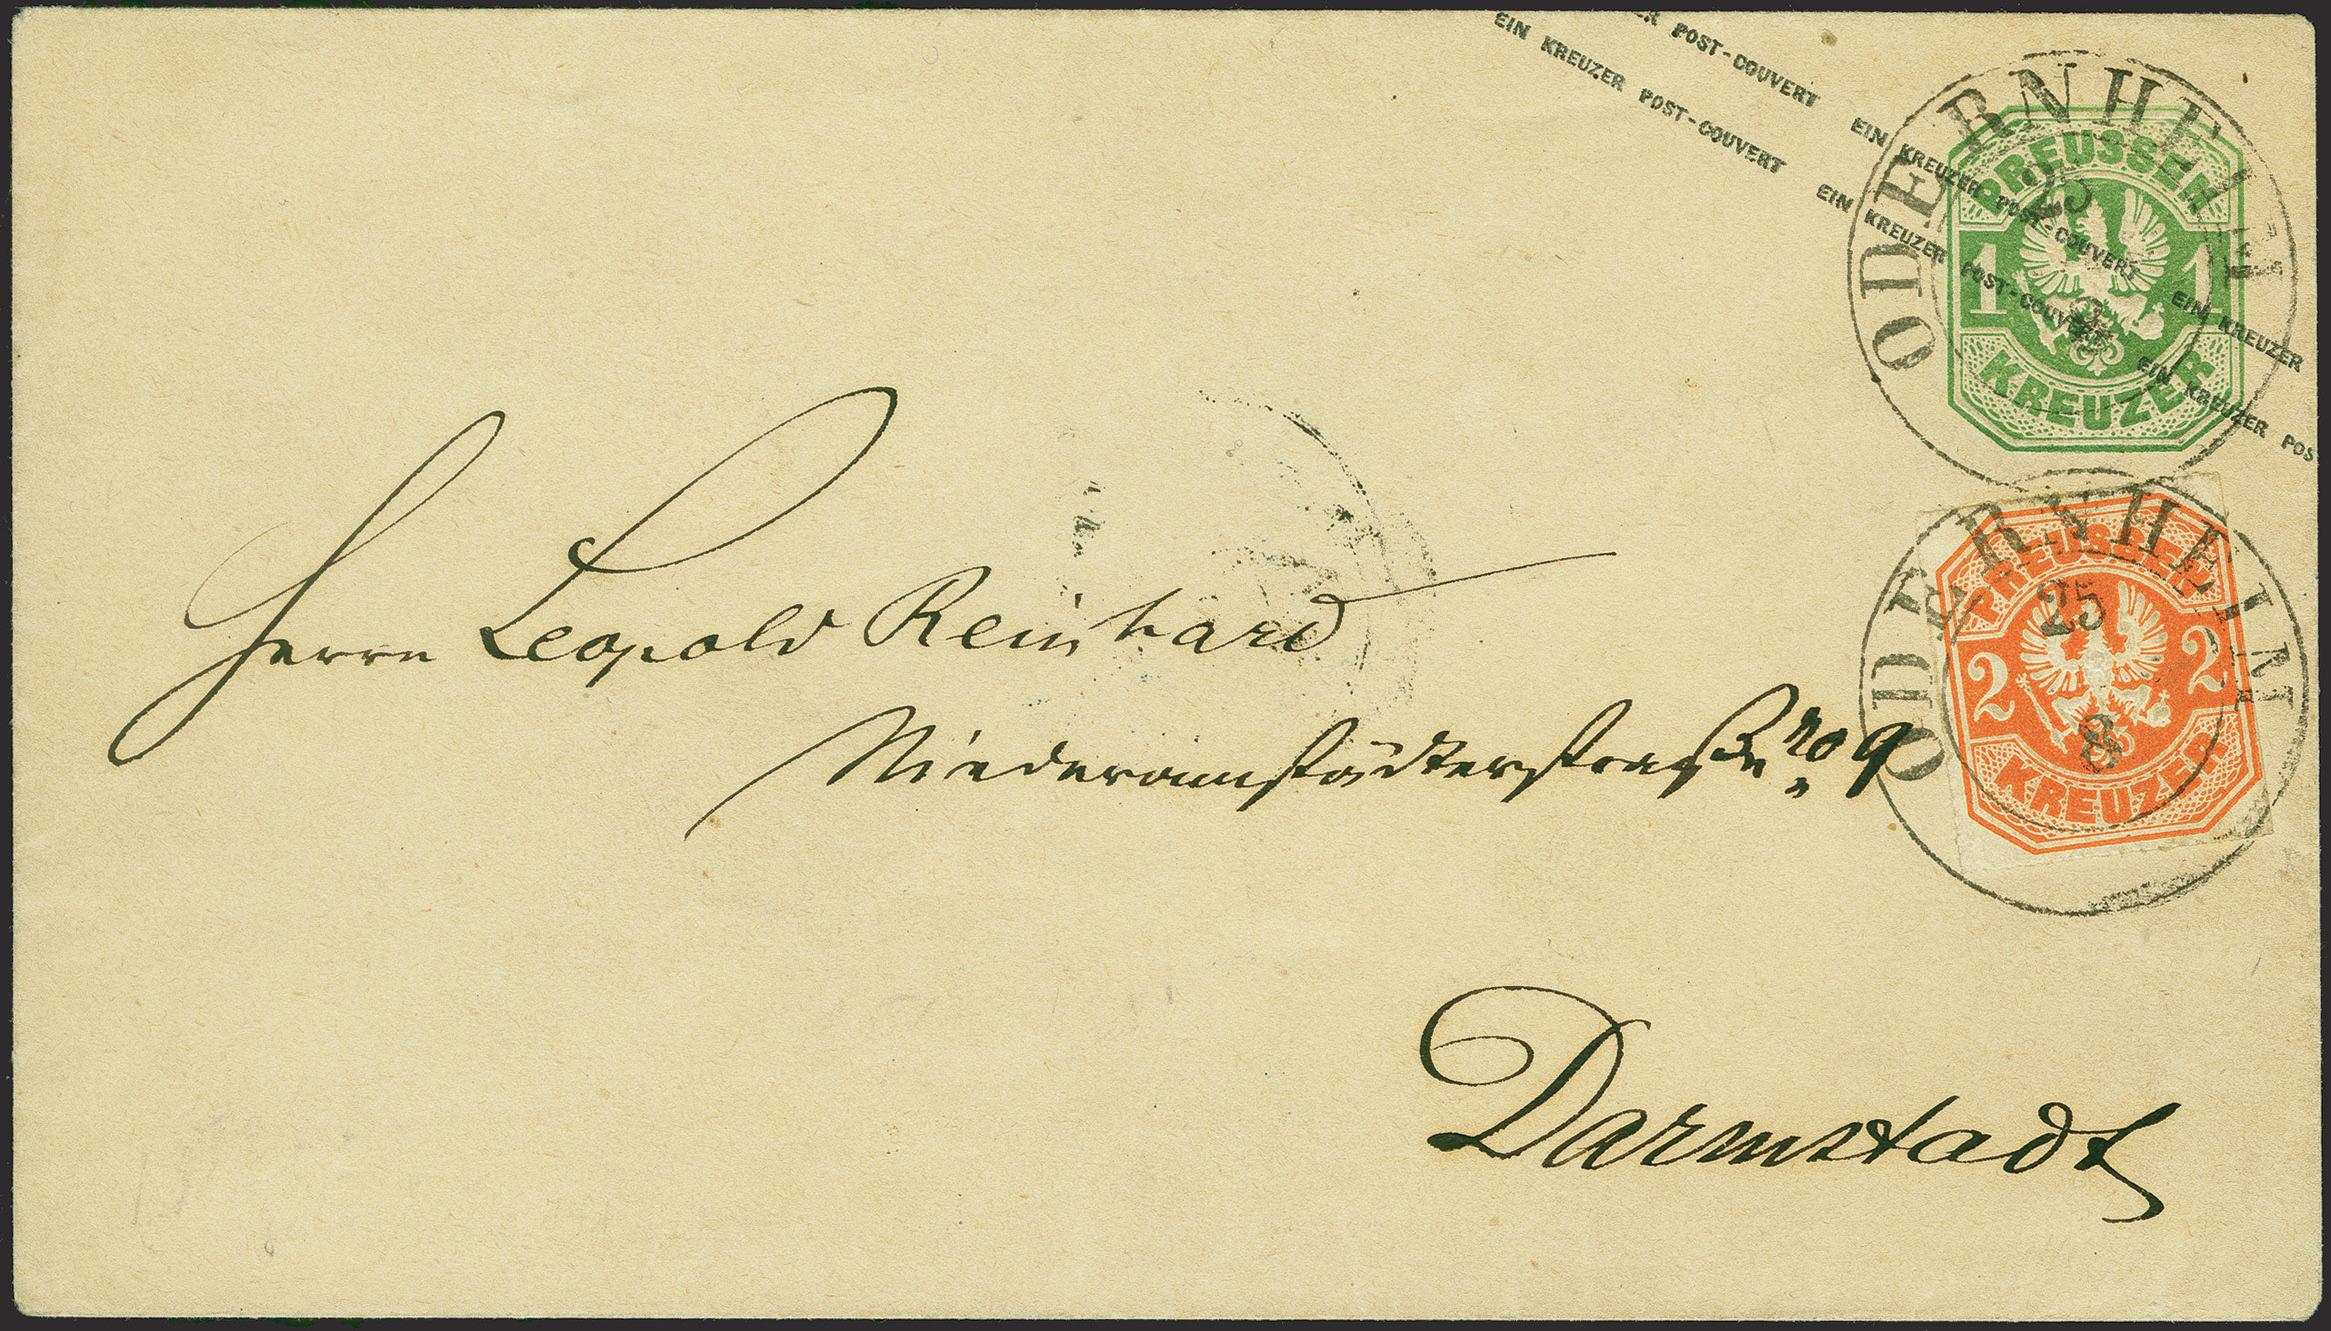 ER POST-COUVERT EIN KREUZER POST-COUVERT EIN KREUZER
EIN KREUZER POST-COUVERT EIN KREUZER POST-COUVERT EIN KREUZER POS
ODERNHEIM
25
8
PREUSSEN
1 1
KREUZER
ODERNHEIM
25
8
PREUSSEN
2 2
KREUZER
Herrn Leopold Reinhard
Niederramstädterstraße No 9
Darmstadt